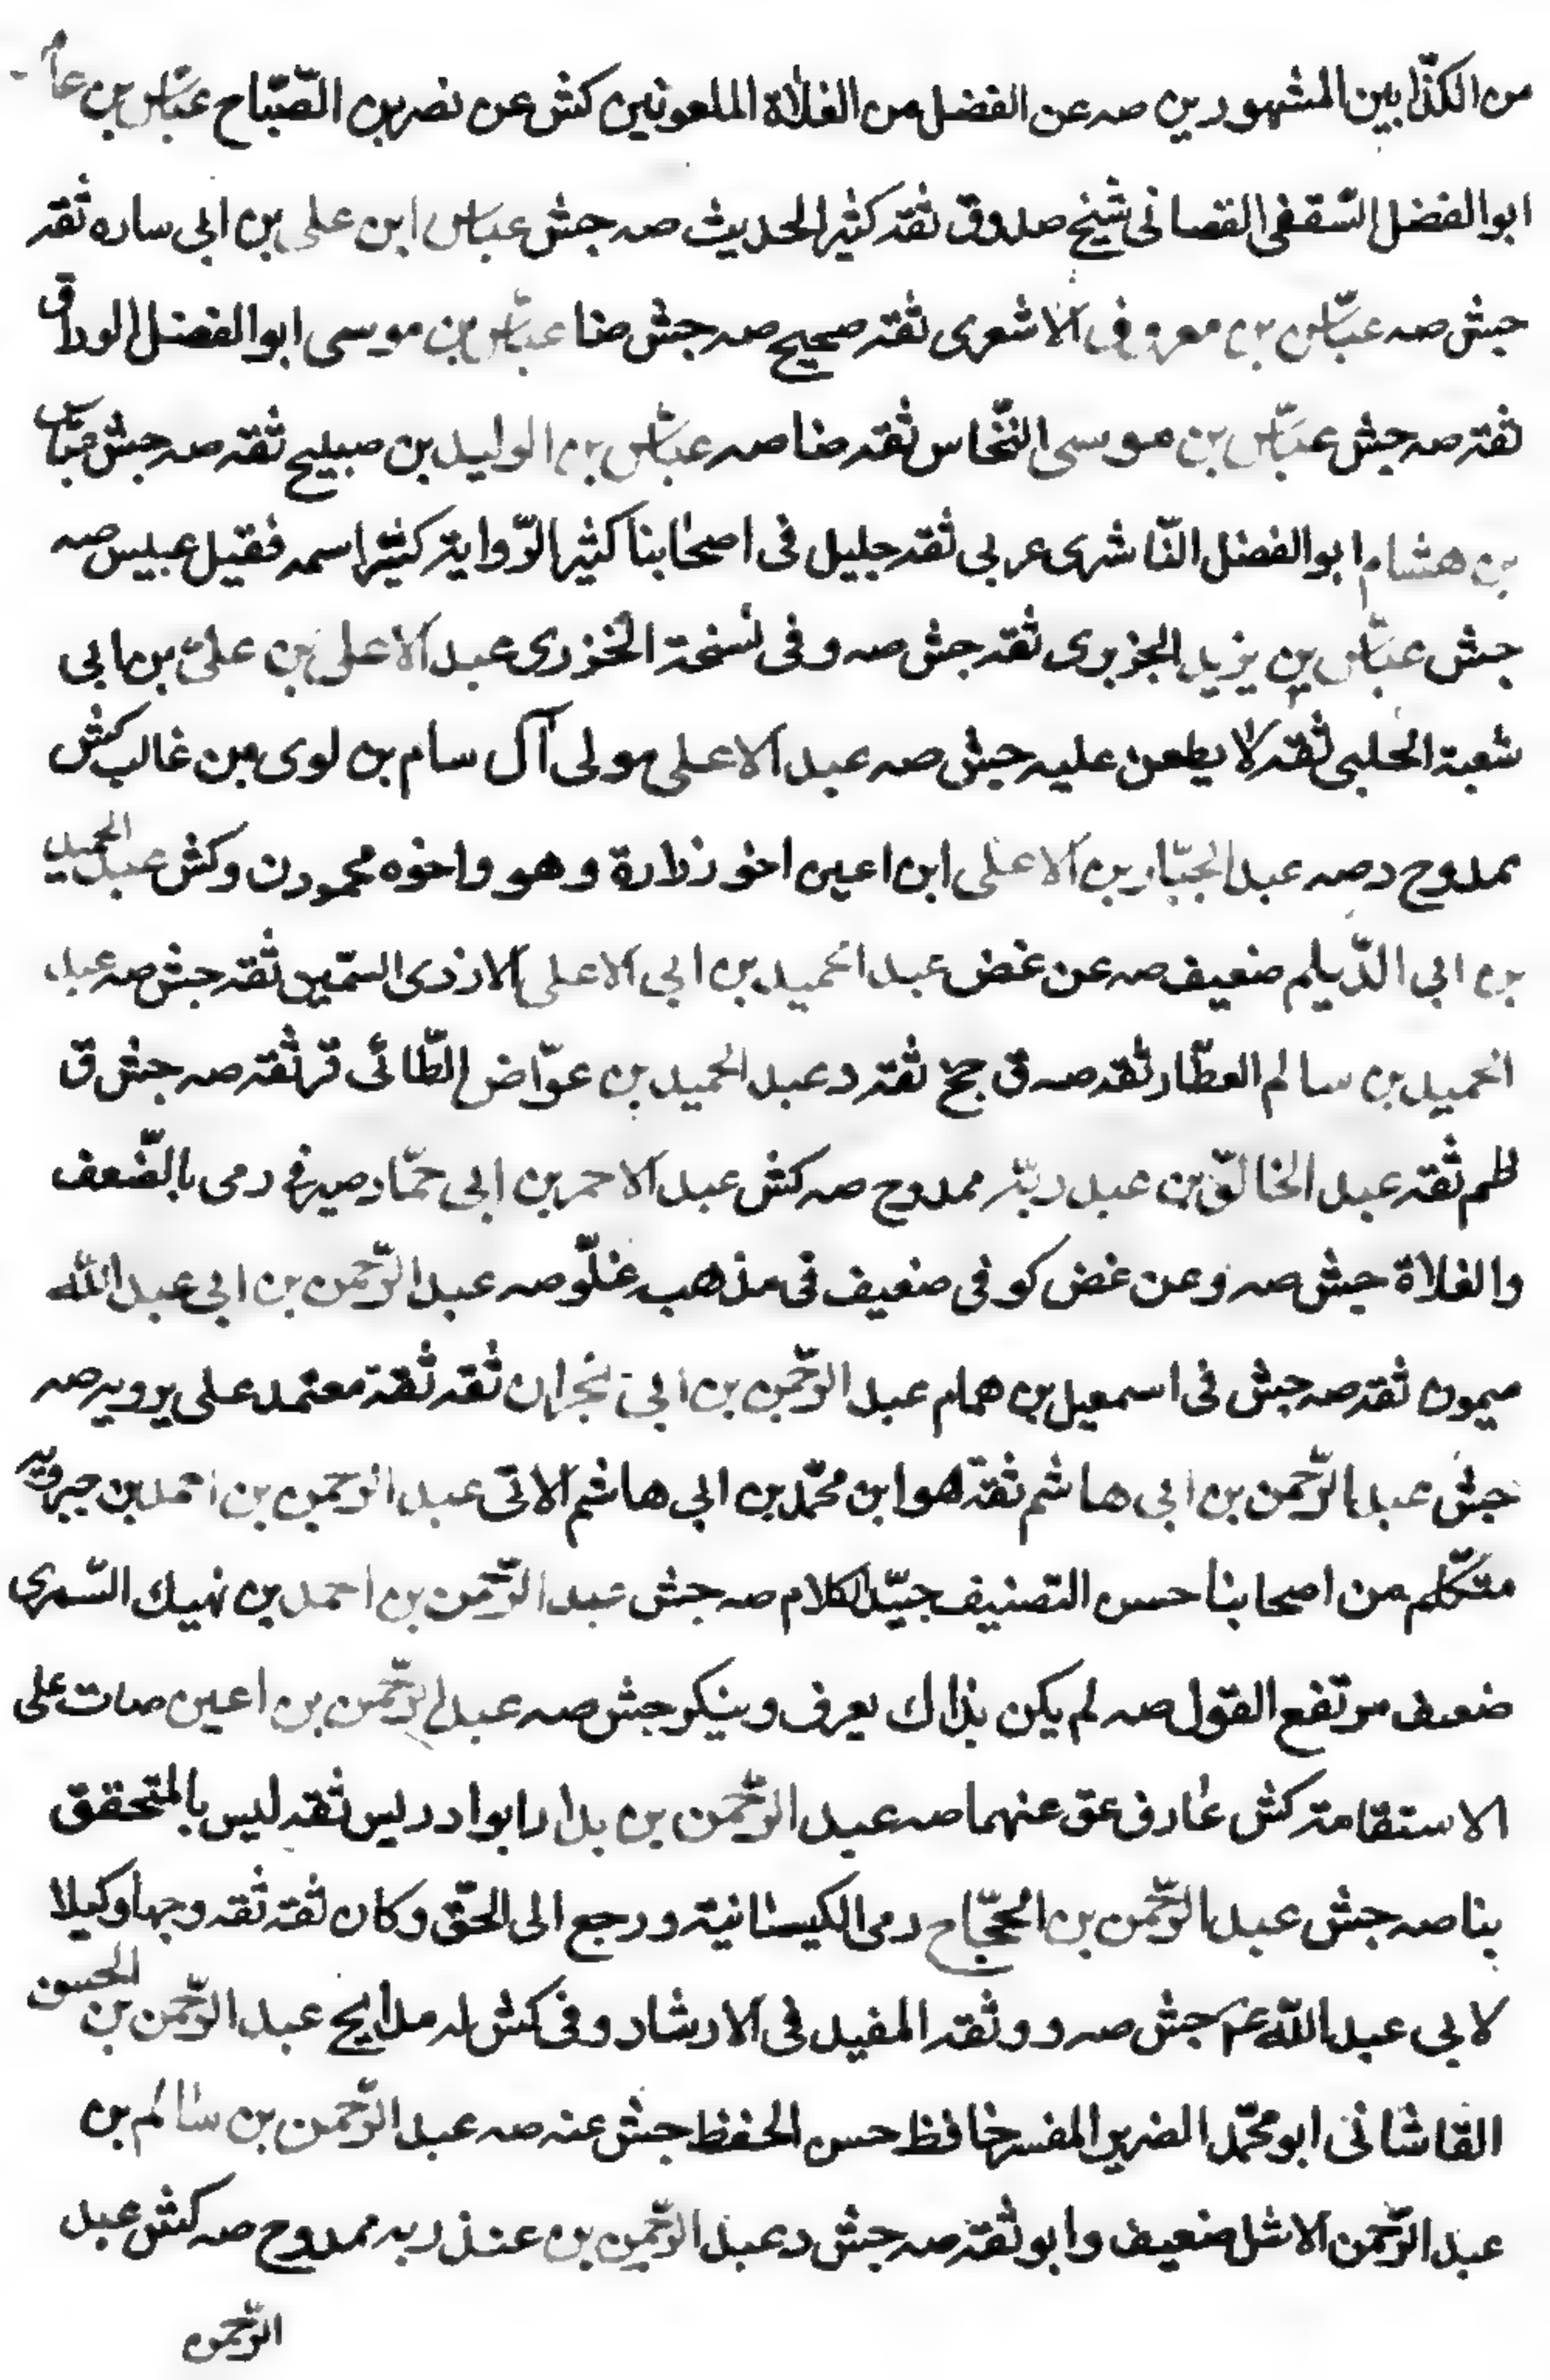 من الكذّابين المشهورين صه عن الفضل من الغلاة الملعونين كش عن نصر بن الصّبّاح عبّاس بن عامر
ابو الفضل الثقفى القصبانى شيخ صدوق ثقة كثير الحديث صه جش عباس ابن على بن ابى ساره ثقة
جش صه عبّاس بن معروف الاشعرى ثقة صحيح صه جش ضا عبّاس بن موسى ابو الفضل الوراق
ثقة صه جش عبّاس بن موسى النّخاس ثقة ضا صه عبّاس بن الوليد بن صبيح ثقة صه جش عبّاس
بن هشام ابو الفضل النّاشرى عربى ثقة جليل فى اصحابنا كثير الرّواية كثر اسمه فقيل عبيس صه
جش عبّاس بن يزيد الجزيرى ثقة جش صه وفى نسخة الخزرى عبد الاعلى بن علىّ بن ابى
شعبة الحلبى ثقة لا يطعن عليه جش صه عبد الاعلى مولى آل سام بن لوى بن غالب كش
ممدوح د صه عبد الجبّار بن الاعلى ابن اعين اخو زرارة وهو واخوه محمودن وكش عبد الحميد
بن ابى الدّيلم ضعيف صه عن غض عبد الحميد بن ابى الاعلى الازدى السّمين ثقة جش صه عبد
الحميد بن سالم العطّار ثقة صه ق جخ ثقة د عبد الحميد بن عوّاض الطّائى قر ثقة صه جش ق
ظم ثقة عبد الخالق بن عبد ربّه ممدوح صه كش عبد الاحمر بن ابى حمّاد صيرفى رمى بالضّعف
والغلاة جش صه وعن غض كوفى ضعيف فى مذهبه غلّو صه عبد الرّحمن بن ابى عبد الله
ميمون ثقة صه جش فى اسمعيل بن همام عبد الرّحمن بن ابى نجران ثقة ثقة معتمد على يرويه صه
جش عبد الرّحمن بن ابى هاشم ثقة هو ابن محمّد بن ابى هاشم الاتى عبد الرحمن بن احمد بن جبرويه
متكلّم من اصحابنا حسن التصنيف جيّد الكلام صه جش عبد الرّحمن بن احمد بن نهيك السّمرى
ضعيف مرتفع القول صه لم يكن بذاك يعرف وينكر جش صه عبد الرّحمن بن اعين مات على
الاستقامة كش عارف عق عنهما صه عبد الرّحمن بن بدر ابو ادريس ثقة ليس بالمتحقق
بنا صه جش عبد الرّحمن بن الحجّاج رمى الكيسانية ورجع الى الحقّ وكان ثقة ثقة وجها وكيلا
لابى عبد الله عم جش صه ووثقه المفيد فى الارشاد وفى كش له مدايح عبد الرّحمن بن الحسن
القاشانى ابو محمّد الضرير المفسر حافظ حسن الحفظ جش عنه صه عبد الرّحمن بن سالم بن
عبد الرّحمن الاشل ضعيف وابو ثقة صه جش د عبد الرّحمن بن عبد ربه ممدوح صه كش عبد
الرّحمن